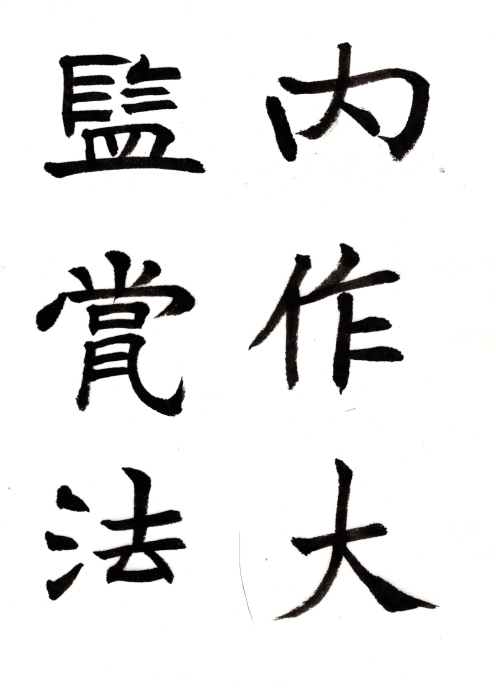 内作大
監賞法